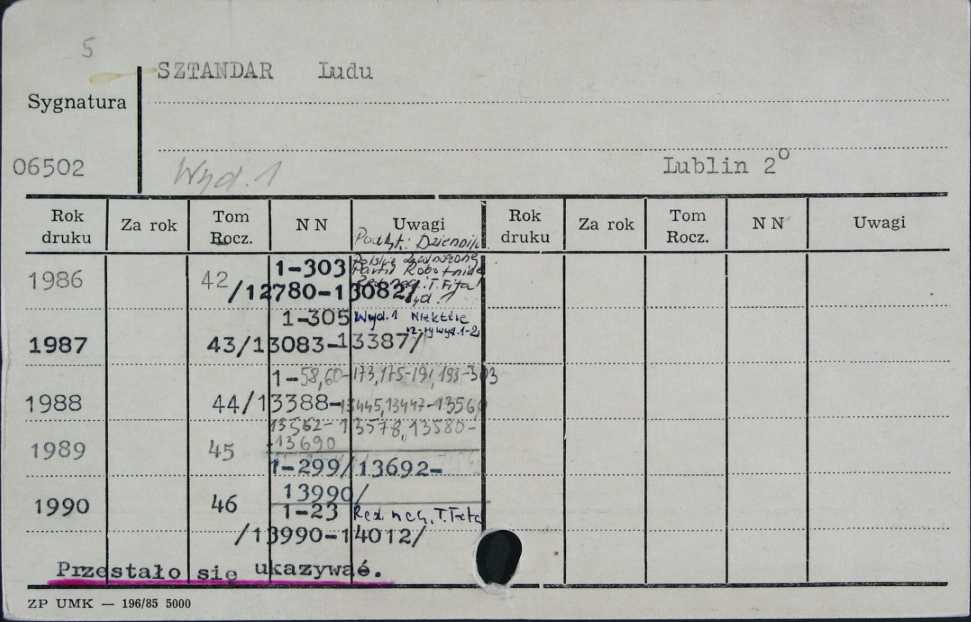 5
SZTANDAR Ludu
Sygnatura
06502
Wyd. 1
Lublin 2°
Rok druku Za rok Tom Rocz. N N Uwagi Rok druku Za rok Tom Rocz. N N Uwagi
Podtyt.: Dziennik
1986 42 1-303 Polskiej Zjednoczonej
Partii Robotniczej
/12780-13082/ T. Fita
Wyd. 1
1-305 Wyd. 1 Niektóre
1987 43/13083-13387/ nr-ry wyd. 1-2
1-58,60-173,175-191,193-303
1988 44/13388-13445,13447-13560
13562-13578,13580-
1989 45 -13690
1-299/13692-
13990/
1990 46 1-23 Red. nacz. T. Fita
/13990-14012/
Przestało się ukazywać.
ZP UMK — 196/85 5000